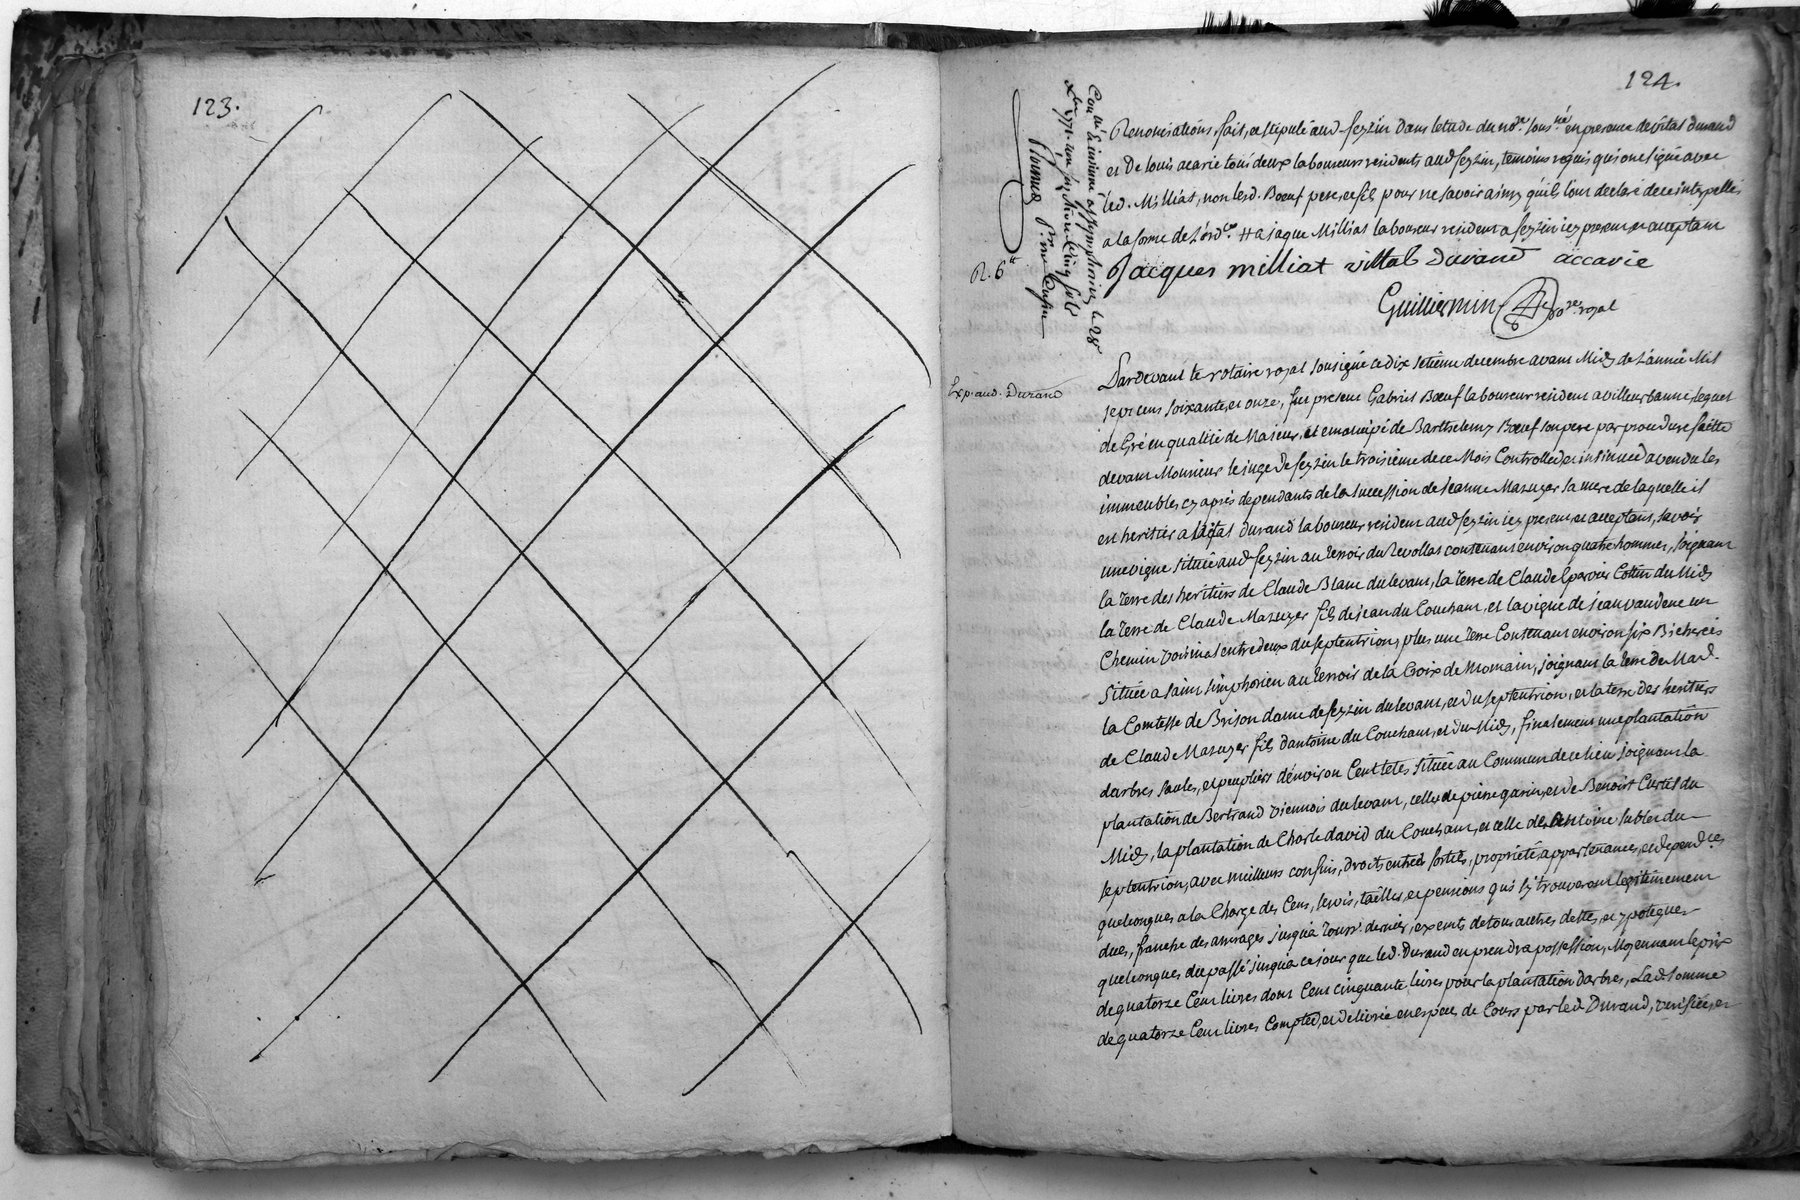 123.
124.
Renonciations, fait, et stipulé aud. feyzin dans letude du no.re sous.né en presence de vital durand
et De louis acarie tous deux laboureurs residents aud feyzin, temoins requis qui ont signé avec
led. Milliat, non lesd. Bœuf pere, et fils pour ne savoir ainsy quils l'ont declaré de ce interpellés
a la forme de L'ord.ce # a jaque Milliat laboureur resident a feyzin icy present et acceptant
R. 6tt
Jacques milliat vittal durand accarie
Guilliermin no.re royal
Con.lé & insinué a st symphorien le 28
Xbre 1771. reçu six livres cinq sols
Exp. aud. Durand
Pardevant le notaire royal sousigné ce dix setieme decembre avant Midy de L'année Mil
sept cens soixante, et onze, fut present Gabriel Bœuf laboureur resident a villeurbanne, lequel
de Gré en qualité de Majeur, et emancipé de Barthelemy Bœuf son pere par procedure faitte
devant Monsieur le juge de feyzin le troisieme de ce Mois Controllée et insinuée a vendu les
immeubles cy aprés dependants de la succession de jeanne Mazuyer sa mere de laquelle il
est heritier a vital durand laboureur resident aud feyzin icy present et acceptant, savoir
une vigne située aud feyzin au Terroir du Revollat contenant environ quatre hommes, joignant
la Terre des heritiers de Claude Blanc du levant, la Terre de Claude Eparvier Cottin du Midy
la Terre de Claude Mazuyer fils de jean du Couchant, et la vigne de jean vandene un
Chemin voisinal entre deux du septentrion, plus une Terre Contenant environ six Bicherées
Située a saint simphorien au Terroir de la Croix de Momain, joignant la Terre de Mad.e
la Comtesse de Brison dame de feyzin du levant, et du septentrion, et la terre des heritiers
de Claude Mazuyer fils d'antoine du Couchant, et du Midy, finalement une plantation
d'arbres saules, et peupliers d'environ Cent tetes Située au Commun de ce lieu joignant la
plantation de Bertrand viennois du levant, celle de pierre garin, et de Benoist Curtil du
Midy, la plantation de Charle david du Couchant, et celle de antoine sublet du
septentrion, avec meilleurs confins, droits, entrées sorties, proprieté, appartenances, et depend.ces
quelconques a la Charge des Cens, servis, tailles, et pensions qui s'y trouveront legitimement
dues, franche des arrerages jusqu'a dernier, exempts de tous autres dettes, et ypoteques
quelconques du passé jusqu'a ce jour que led. Durand en prendra possession, Moyennant le prix
de quatorze Cent livres dont Cent cinquante livres pour la plantation d'arbres, Lad. somme
de quatorze Cent livres Comptée, et delivrée en espece de Cours par led Durand, verifiée, et